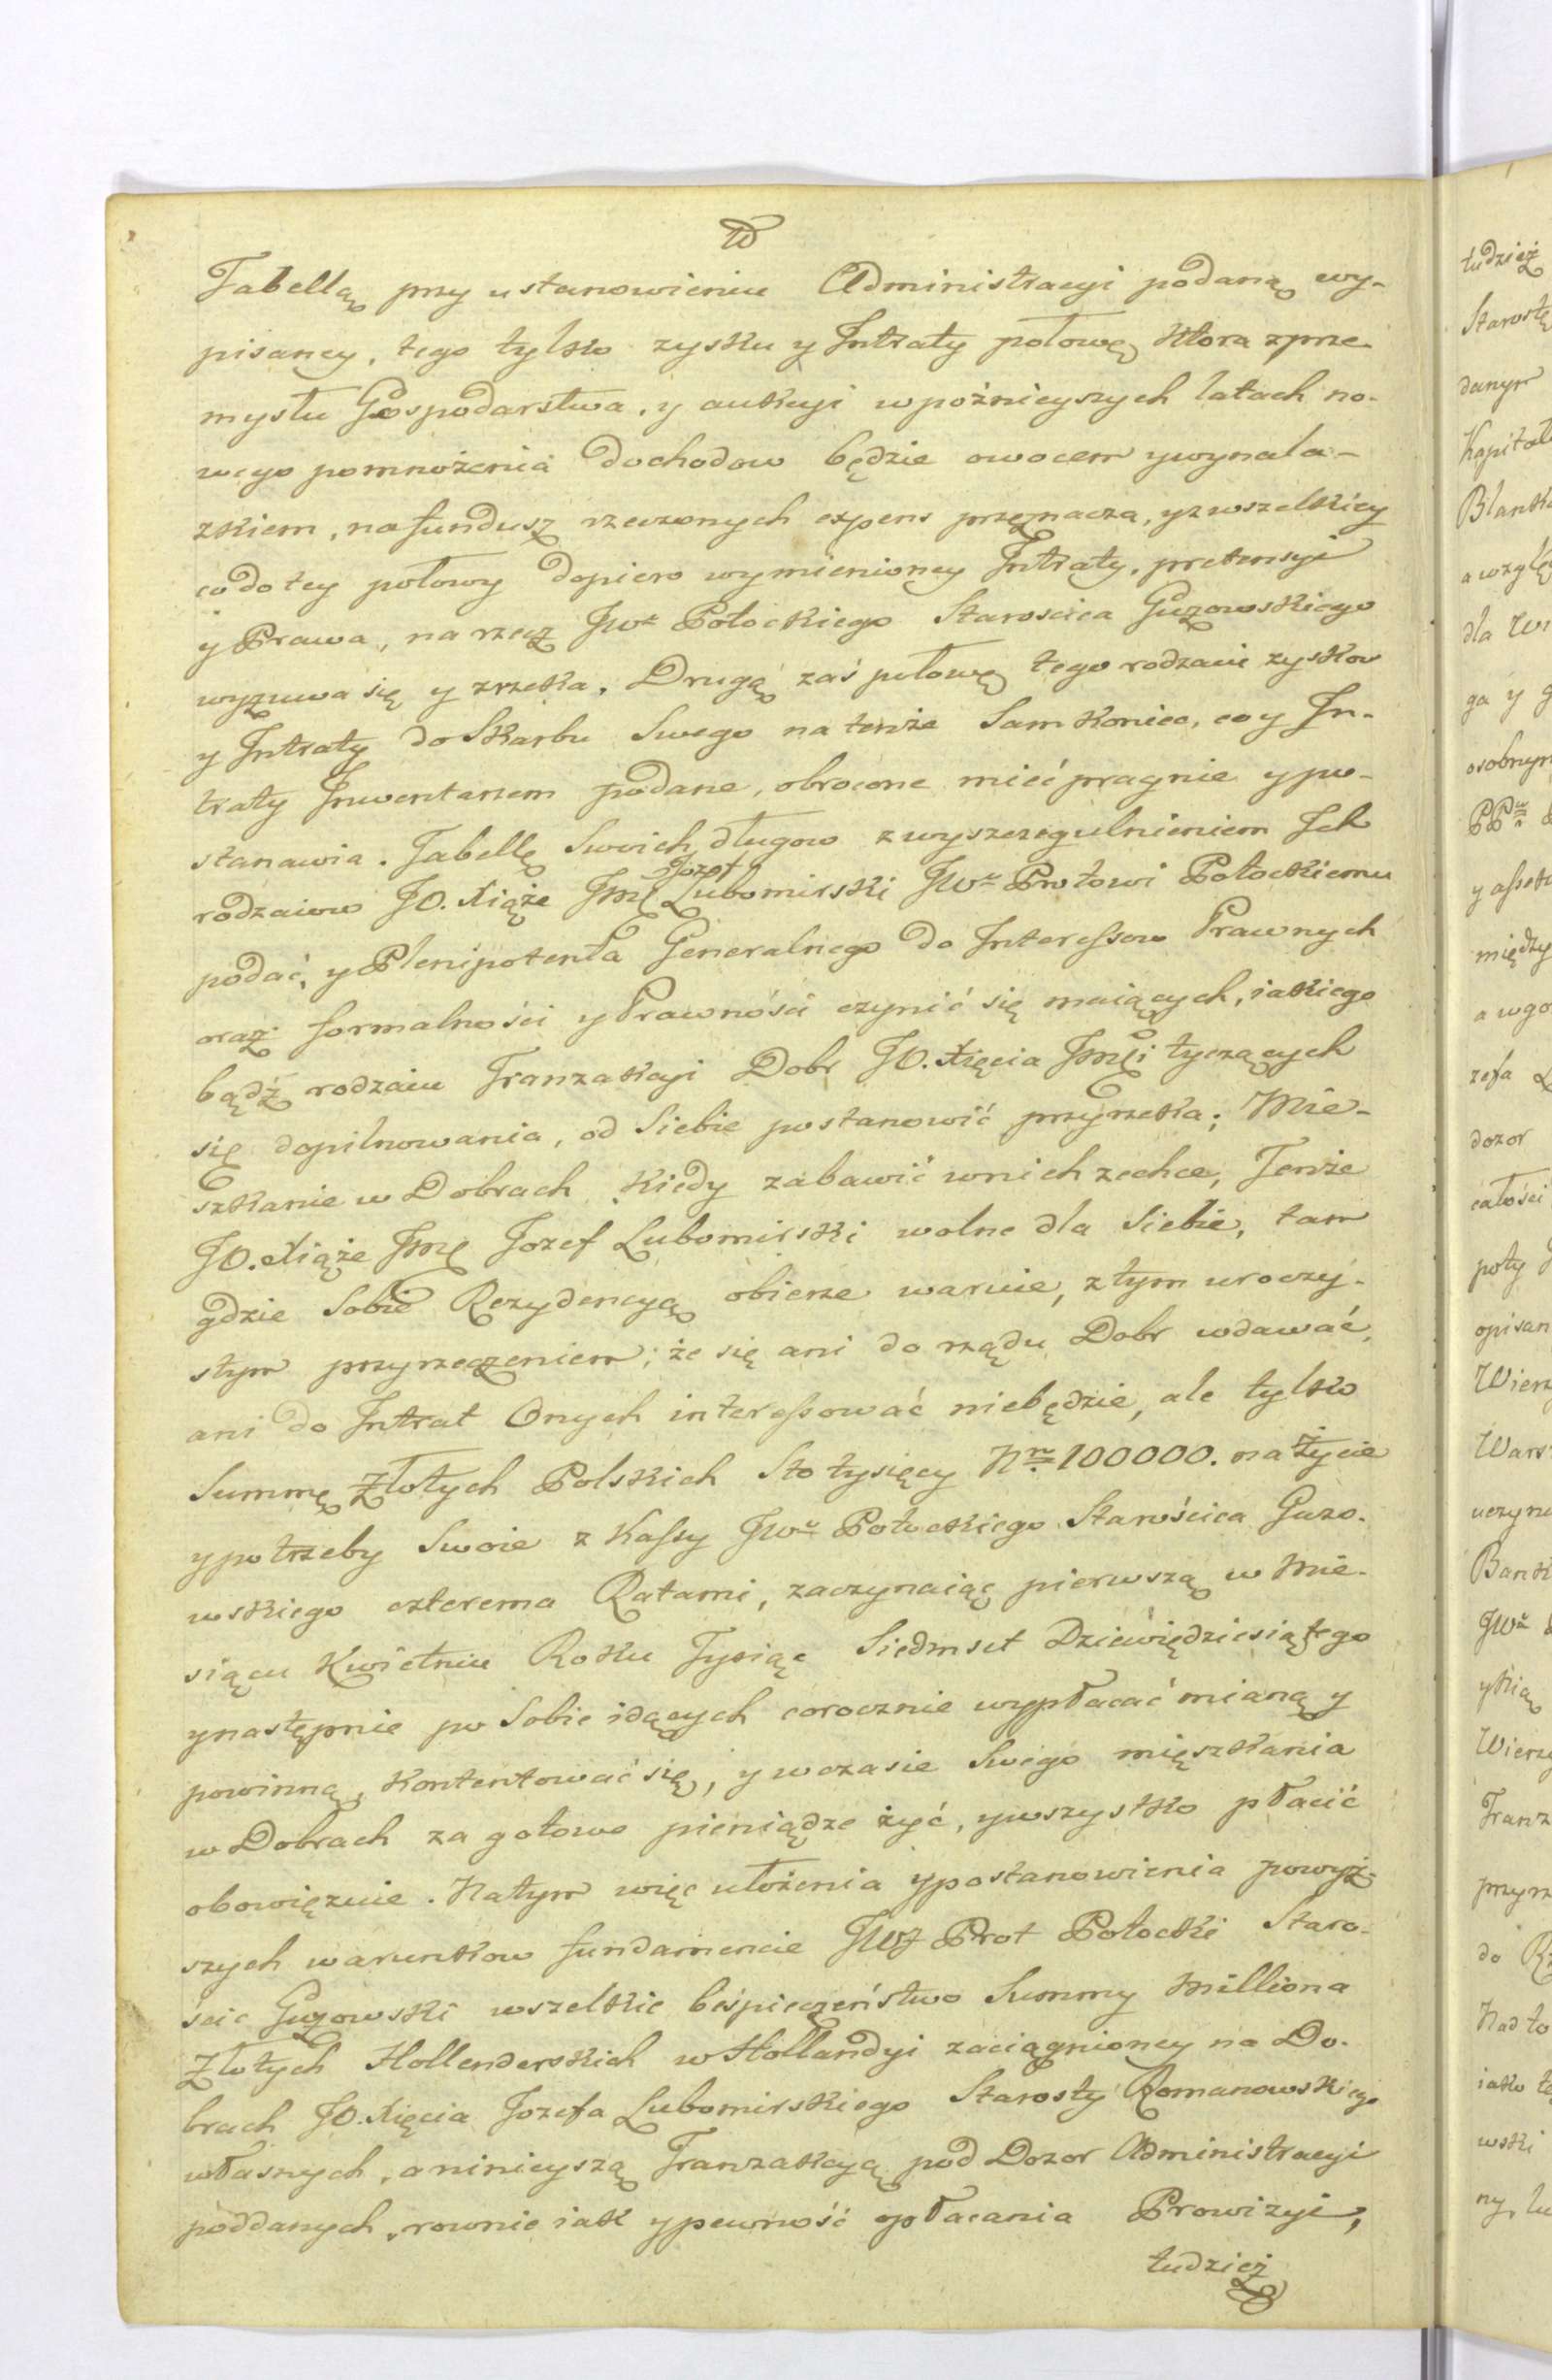 Tabellą przy ustanowieniu Administracyi podaną wy-
pisaney, tego tylko zysku y Intraty połowę ktora zprze-
mysłu Gospodarstwa, y aukcyi wpoźnieyszych latach no-
wego pomnożenia dochodow będzie owocem ywynala-
zkiem, nafundusz rzeczonych expens przeznacza, yzwszelkiey
codotey połowy dopiero wymienioney Intraty, pretensyi
y Prawa, narzecz JWo Potockiego Staroscica Guzowskiego
wyzuwa się y zrzeka. Drugą zaś połowę tego rodzaiu zyskow
y Intraty do Skarbu Swego na tenże Sam koniec, co y In-
traty Inwentarzem podane, obrocone mieć pragnie ypo-
stanawia. Tabellę Swoich długow zwyszczegulnieniem Ich
rodzaiow JO. Xiąże Jmć Jozef Lubomirski JWu Protowi Potockiemu
podać, y Plenipotenta Generalnego do Interessow Prawnych
oraz formalności y Prawności czynić się maiących, iakiego
bądź rodzaiu Tranzakcyi Dobr JO. Xięcia Jmći tyczących
się dopilnowania, od Siebie postanowić przyrzeka; Mie-
szkanie w Dobrach kiedy zabawić wnich zechce, Tenże
JO. Xiąże Jmć Jozef Lubomirski wolne dla Siebie, tam
gdzie Sobie Rezydencyą obierze waruie, ztym uroczy-
stym przyrzeczeniem; że się ani do rządu Dobr wdawać,
ani do Intrat Onych interessować niebędzie, ale tylko
Summę Złotych Polskich Sto tysięcy Nro 100000. na życie
ypotrzeby Swoie z Kassy JWo Potockiego Starościca Guzo-
wskiego czterema Ratami, zaczynaiąc pierwszą w Mie-
siącu Kwietniu Roku Tysiąc Siedmset Dziewiędziesiątego
ynastępnie po Sobie idących corocznie wypłacać mianą y
powinną, kontentować się, y wczasie Swego mięszkania
w Dobrach za gotowe pieniądze żyć, ywszystko płacić
obowięzuie. Natym więc ułożenia ypostanowienia powyż-
szych warunkow fundamencie JWJ Prot Potocki Staro-
ścic Guzowski wszelkie beśpieczeństwo Summy Milliona
Złotych Hollenderskich w Hollandyi zaciągnioney na Do-
brach JO. Xięcia Jozefa Lubomirskiego Starosty Romanowskiego
własnych, a ninieyszą Tranzakcyą pod Dozor Administracyi
poddanych, rownie iak ypewność opłacania Prowizyi,
tudzież